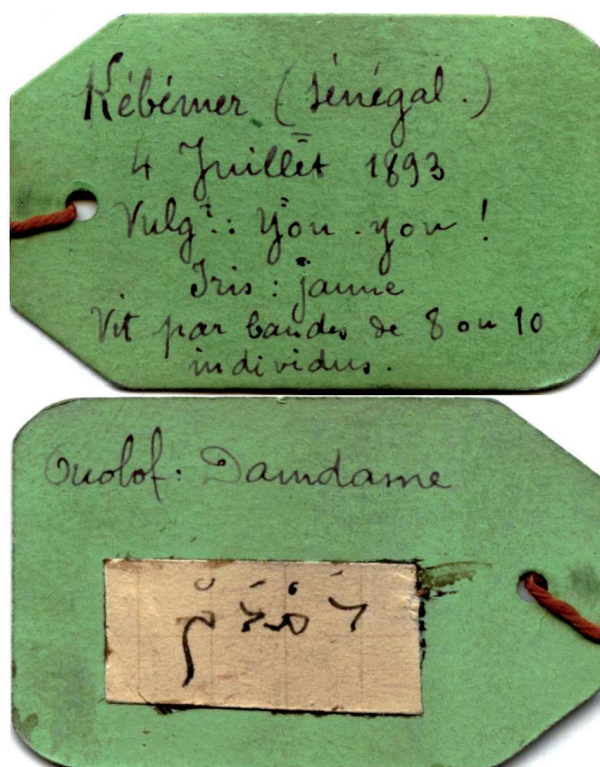 Kébémer (Sénégal.)
4 Juillet 1893
Vulgt: You-you !
Iris: jaune
Vit par bandes de 8 ou 10
individus.
Ouolof: Damdame